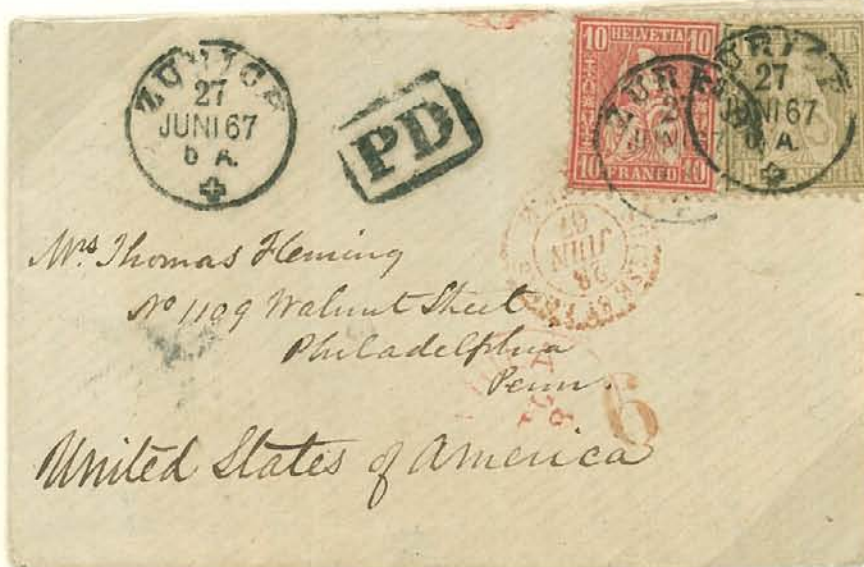 ZURICH
27
JUNI 67
6 A.
PD
10 HELVETIA 10
10 FRANCO 10
ZURICH
27
JUNI 67
ZURICH
27
JUNI 67
6 A.
28
JUIN
67
Mrs. Thomas Fleming
No 1109 Walnut Street
Philadelphia
Penn.
6
United States of America